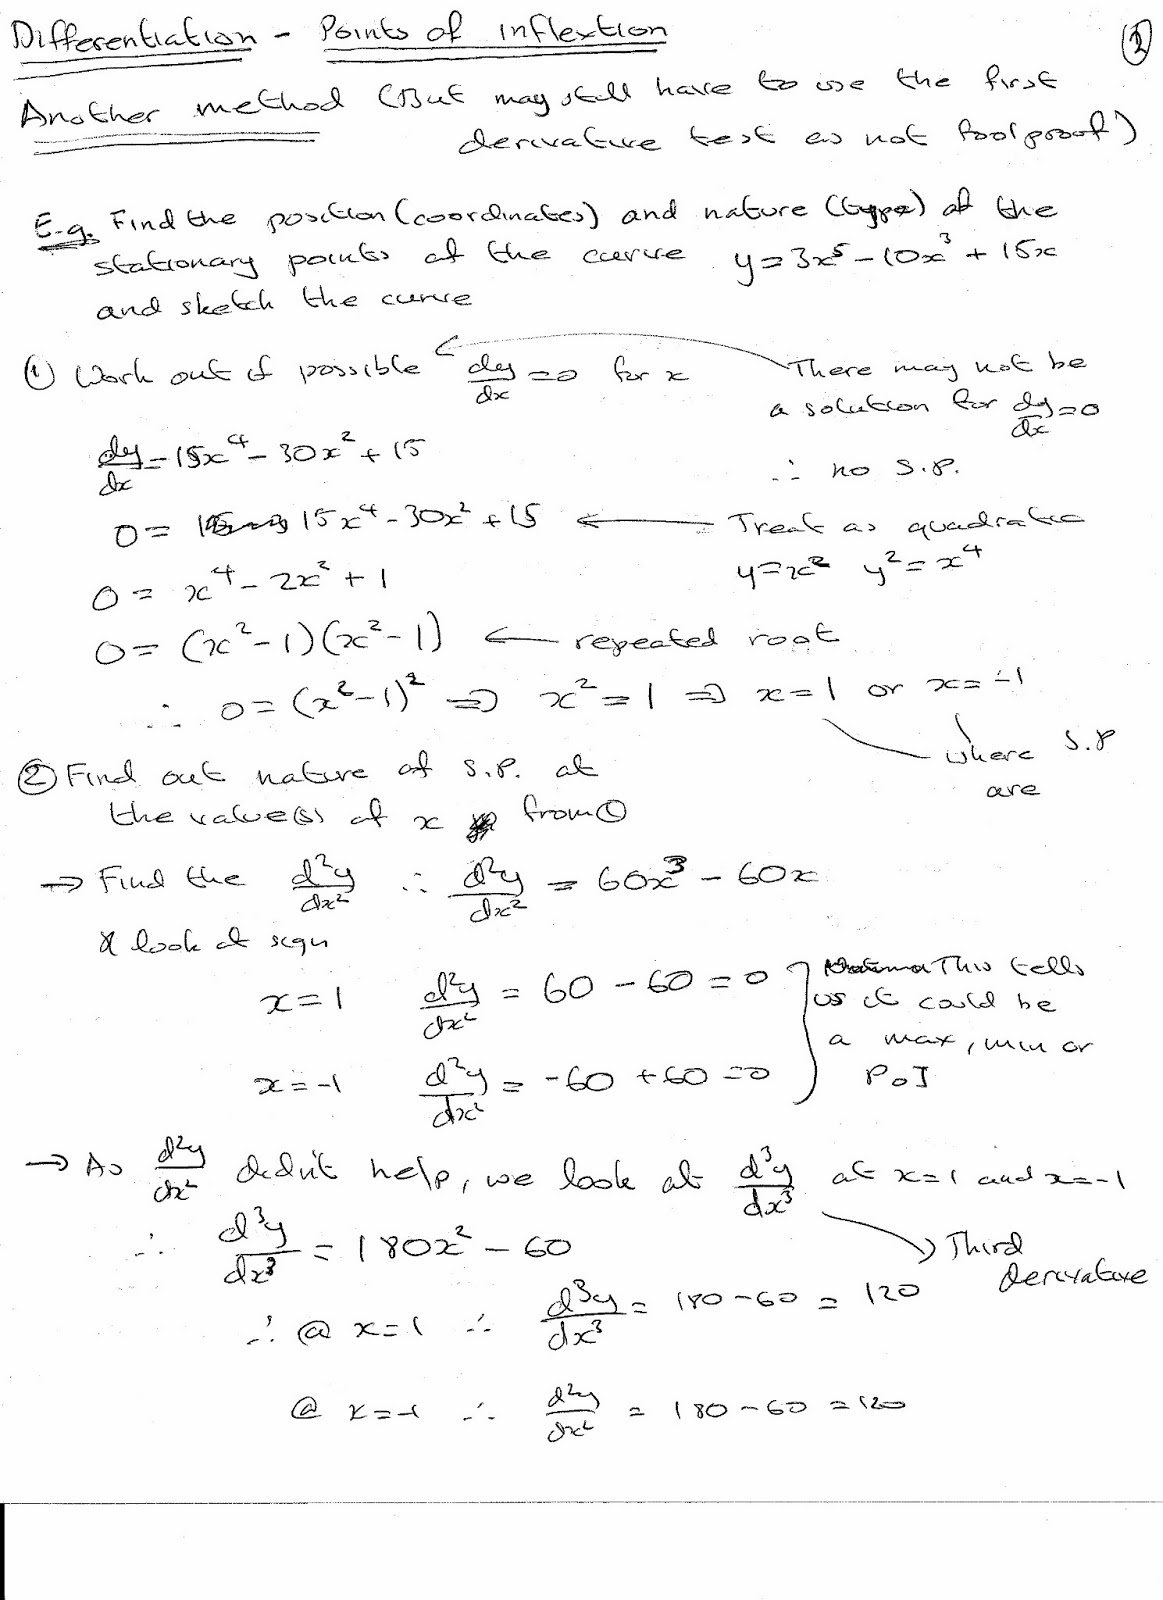 Differentiation - Points of inflextion
②
Another method (But may still have to use the first
derivative test as not foolproof)
E.g. Find the position (coordinates) and nature (type) of the
stationary points of the curve y = 3x⁵ - 10x³ + 15x
and sketch the curve
① Work out if possible dy/dx = 0 for x
There may not be
a solution for dy/dx = 0
∴ no S.P.
dy/dx = 15x⁴ - 30x² + 15
0 = 15x⁴ - 30x² + 15 ← Treat as quadratic
y = x² y² = x⁴
0 = x⁴ - 2x² + 1
0 = (x² - 1)(x² - 1) ← repeated root
∴ 0 = (x² - 1)² ⇒ x² = 1 ⇒ x = 1 or x = -1
where S.P
are
② Find out nature of S.P. at
the value(s) of x from ①
→ Find the d²y/dx² ∴ d²y/dx² = 60x³ - 60x
& look at sign
x = 1 d²y/dx² = 60 - 60 = 0
x = -1 d²y/dx² = -60 + 60 = 0
This tells
us it could be
a max, min or
P o I
→ As d²y/dx² didn't help, we look at d³y/dx³ at x = 1 and x = -1
∴ d³y/dx³ = 180x² - 60
→ Third
derivative
∴ @ x = 1 ∴ d³y/dx³ = 180 - 60 = 120
@ x = -1 ∴ d²y/dx² = 180 - 60 = 120